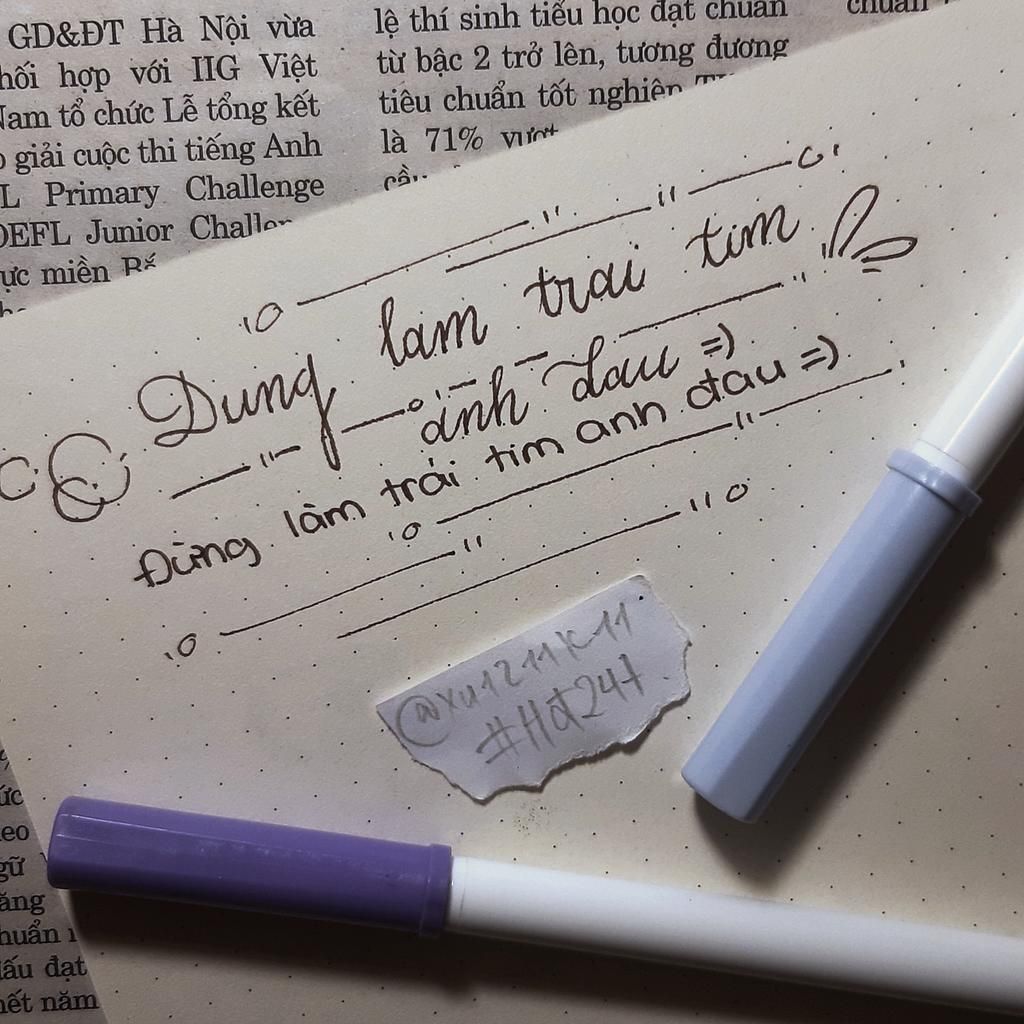 GD&ĐT Hà Nội vừa
hối hợp với IIG Việt
Nam tổ chức Lễ tổng kết
giải cuộc thi tiếng Anh
Primary Challenge
Junior
ực miền
lệ thí sinh tiểu học đạt chuẩn
từ bậc 2 trở lên, tương đương
tiêu chuẩn tốt nghiệp
là 71%
chuẩn
Dung lam trai tim
anh dau =)
Đừng làm trái tim anh đau =)
@xu1211k11
#Hđ24t
ức
eo
gữ
ăng
huẩn
ấu đạt
hết năm